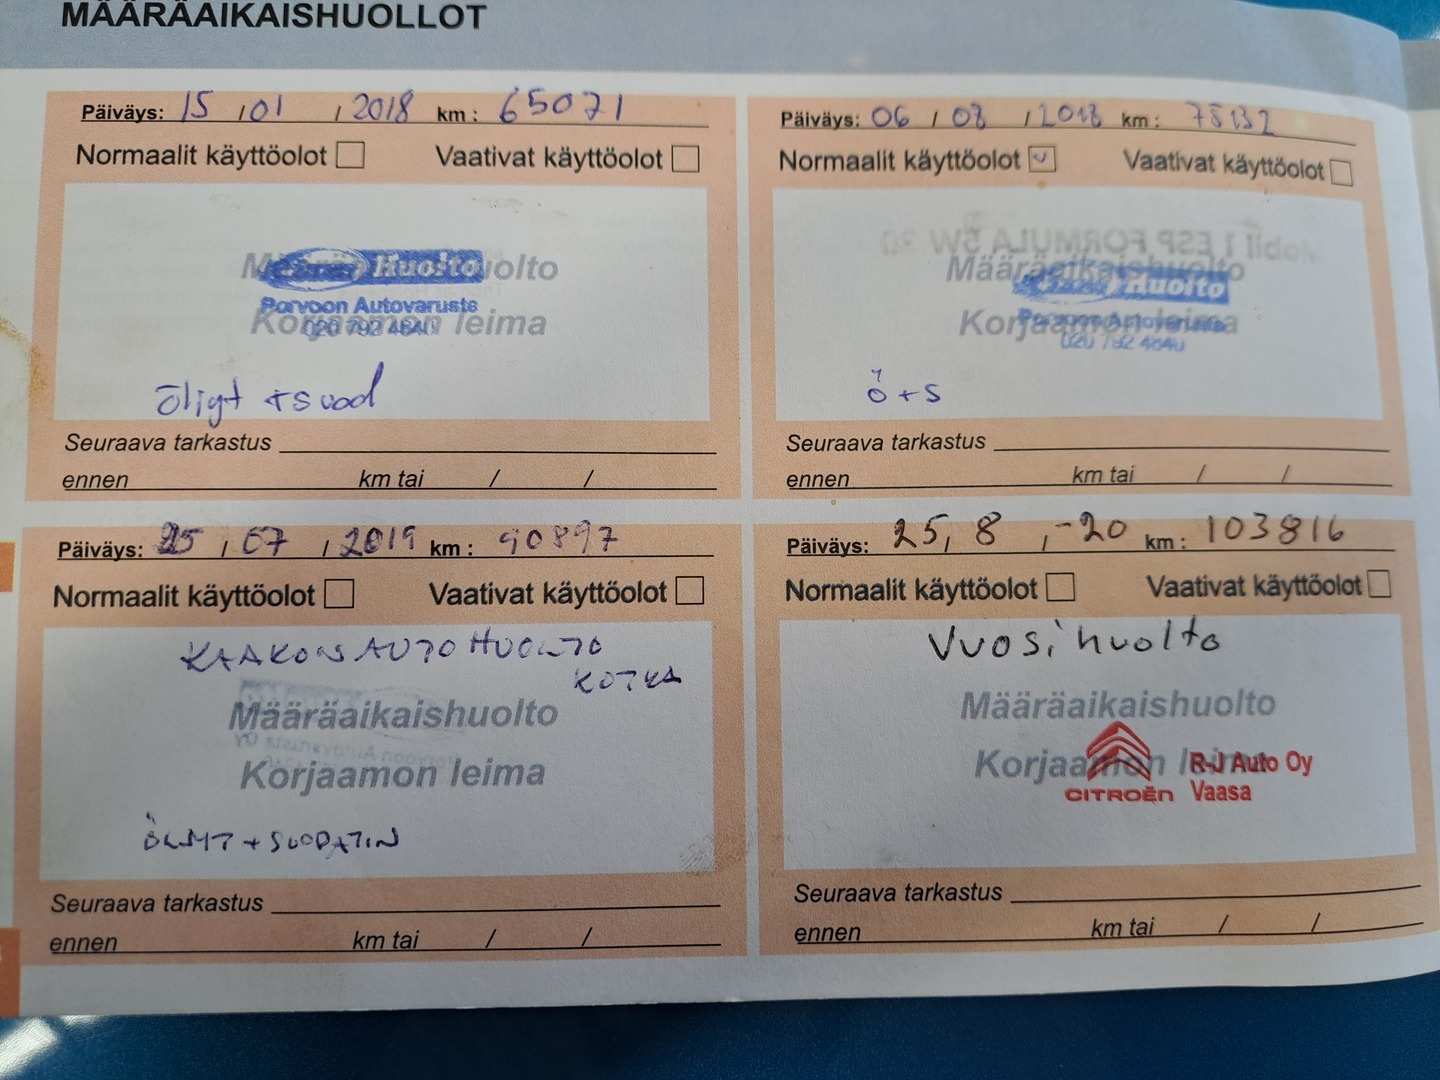 MÄÄRÄAIKAISHUOLLOT
Päiväys: 15 / 01 / 2018 km : 65071
Normaalit käyttöolot Vaativat käyttöolot
Määräaikaishuolto
Huolto
Porvoon Autovaruste
Korjaamon leima
020 792 4640
öljyt + suod
Seuraava tarkastus
ennen km tai / /
Päiväys: 06 / 08 / 2018 km : 78132
Normaalit käyttöolot Vaativat käyttöolot
Mobil 1 ESP FORMULA 5W 30
Määräaikaishuolto
Huolto
Porvoon Autovaruste
Korjaamon leima
020 792 4640
ö + s
Seuraava tarkastus
ennen km tai / /
Päiväys: 25 / 07 / 2019 km : 90897
Normaalit käyttöolot Vaativat käyttöolot
KAAKON AUTOHUOLTO
KOTKA
Määräaikaishuolto
Porvoon Autovaruste Oy
Korjaamon leima
ÖLJYT + SUODATIN
Seuraava tarkastus
ennen km tai / /
Päiväys: 25, 8 , -20 km : 103816
Normaalit käyttöolot Vaativat käyttöolot
Vuosihuolto
Määräaikaishuolto
Korjaamon leima
R-J Auto Oy
CITROËN Vaasa
Seuraava tarkastus
ennen km tai / /